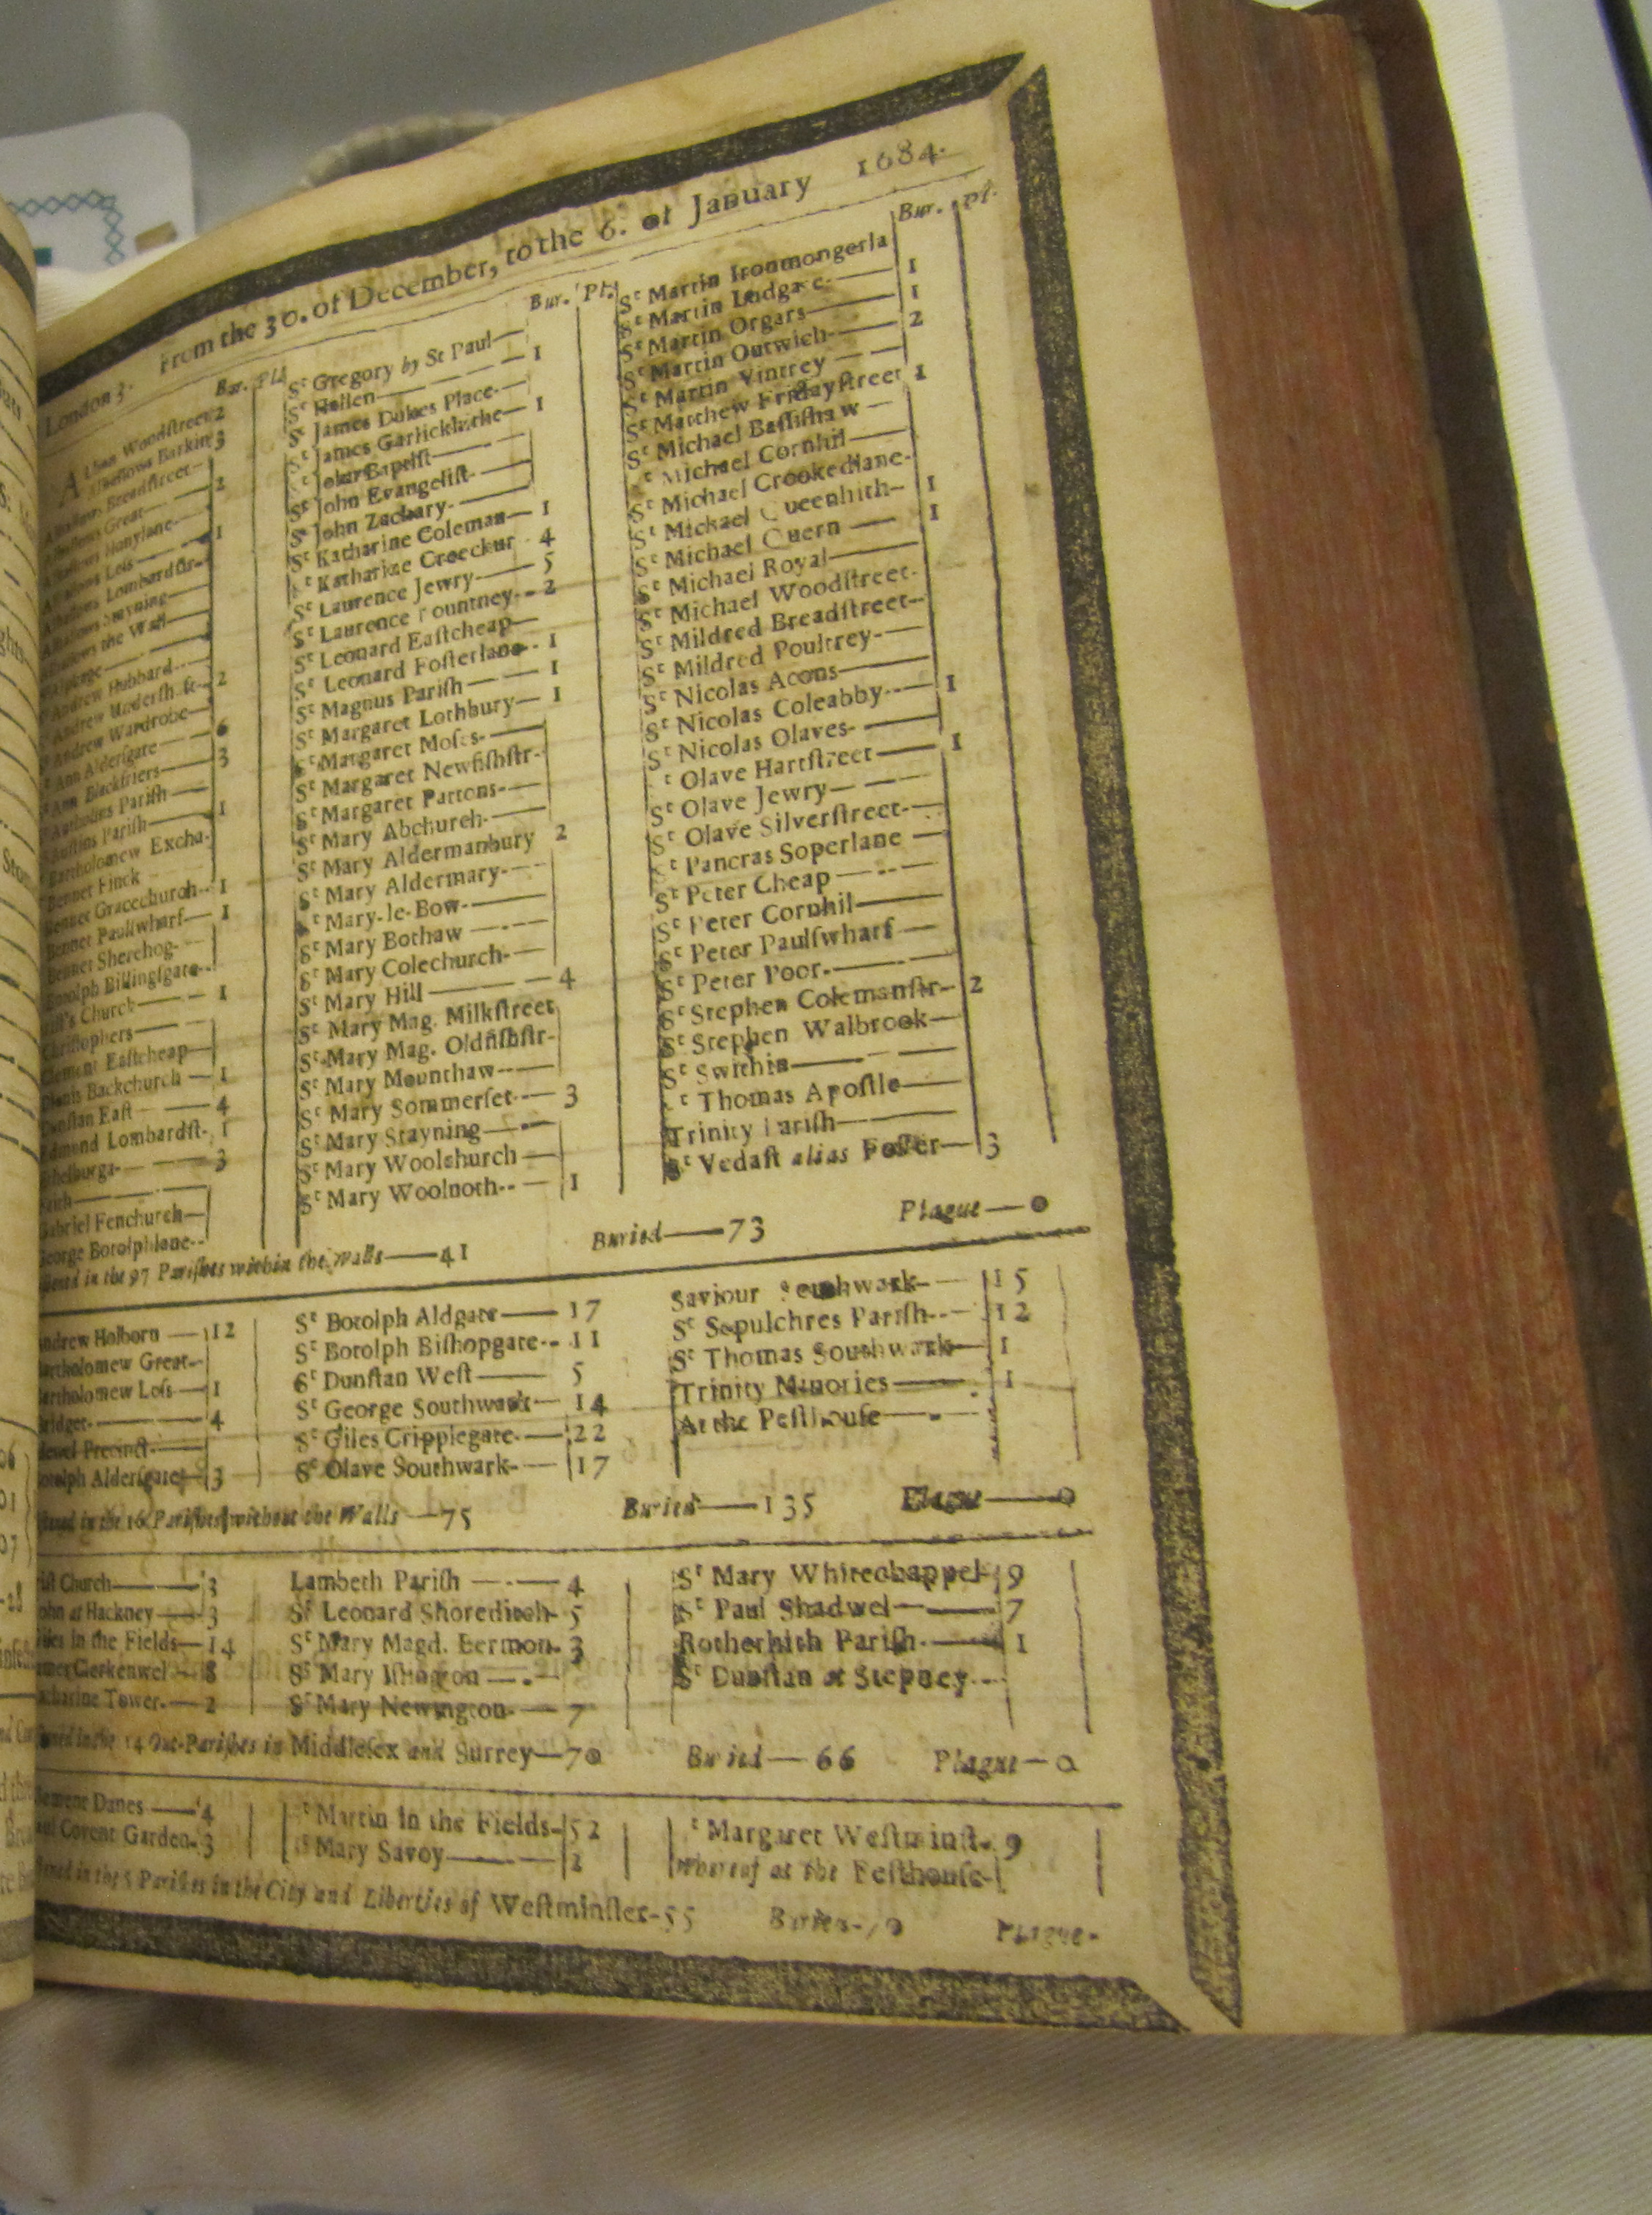 London 3. From the 30. of December, to the 6. of January 1684.
Bur. Pla
Woodstreet 2
Barkin 3
Breadstreet
Great 2
Honylane
Lombardstr
the Wall
Andrew Hubbard
2
Andrew Wardrobe
Ann Aldersgate
Ann Blackfriers 3
Parish
Parish 1
Bartholomew Excha
Bennet Finck
Bennet Gracechurch 1
Bennet Paulſwharf 1
Bennet Sherehog
Botolph Billingſgate
Church 1
Eaſtcheap
Backchurch 1
Eaſt 4
Lombardſt. 1
3
Gabriel Fenchurch
George Botolphlane
Bur. Pl.
Sᵗ Gregory by St Paul
Sᵗ Hellen 1
Sᵗ James Dukes Place
Sᵗ James Garlickhithe 1
Baptiſt
Sᵗ John Evangeliſt
Sᵗ John Zachary
Sᵗ Katharine Coleman 1
Sᵗ Katharine Creechur 4
Sᵗ Laurence Jewry 5
Sᵗ Laurence Pountney 2
Sᵗ Leonard Eaſtcheap
Sᵗ Leonard Foſterlane 1
Sᵗ Magnus Pariſh 1
Sᵗ Margaret Lothbury 1
Sᵗ Margaret Moſes
Sᵗ Margaret Newfiſhſtr
Sᵗ Margaret Pattons
Sᵗ Mary Abchurch
Sᵗ Mary Aldermanbury 2
Sᵗ Mary Aldermary
Sᵗ Mary-le-Bow
Sᵗ Mary Bothaw
Sᵗ Mary Colechurch
Sᵗ Mary Hill 4
Sᵗ Mary Mag. Milkſtreet
Sᵗ Mary Mag. Oldfiſhſtr
Sᵗ Mary Mounthaw
Sᵗ Mary Sommerſet 3
Sᵗ Mary Stayning
Sᵗ Mary Woolchurch
Sᵗ Mary Woolnoth 1
Bur. Pl.
Sᵗ Martin Ironmongerla
Sᵗ Martin Ludgate 1
Sᵗ Martin Orgars 1
Sᵗ Martin Outwich 2
Sᵗ Martin Vintrey
Sᵗ Matthew Fridayſtreet 1
Sᵗ Michael Baſſiſhaw
Sᵗ Michael Cornhil
Sᵗ Michael Crookedlane
Sᵗ Michael Queenhith 1
Sᵗ Michael Quern 1
Sᵗ Michael Royal
Sᵗ Michael Woodſtreet
Sᵗ Mildred Breadſtreet
Sᵗ Mildred Poultrey
Sᵗ Nicolas Acons
Sᵗ Nicolas Coleabby 1
Sᵗ Nicolas Olaves
Sᵗ Olave Hartſtreet 1
Sᵗ Olave Jewry
Sᵗ Olave Silverſtreet
Sᵗ Pancras Soperlane
Sᵗ Peter Cheap
Sᵗ Peter Cornhil
Sᵗ Peter Paulſwharf
Sᵗ Peter Poor
Sᵗ Stephen Colemanſtr 2
Sᵗ Stephen Walbrook
Sᵗ Swithin
Sᵗ Thomas Apoſtle
Trinity Pariſh
Sᵗ Vedaſt alias Foſter 3
in the 97 Pariſhes within the Walls—41 Buried—73 Plague—0
Andrew Holborn 12
Bartholomew Great
Bartholomew Leſs 1
Bridget 4
Precinct
Botolph Alderſgate 3
Sᵗ Botolph Aldgate 17
Sᵗ Botolph Biſhopgate 11
Sᵗ Dunſtan Weſt 5
Sᵗ George Southwark 14
Sᵗ Giles Cripplegate 22
Sᵗ Olave Southwark 17
Saviour Southwark 15
Sᵗ Sepulchres Pariſh 12
Sᵗ Thomas Southwark 1
Trinity Minories 1
At the Peſthouſe
in the 16 Pariſhes without the Walls—75 Buried—135 Plague—0
Church 3
John at Hackney 3
Giles in the Fields 14
Clerkenwel 8
Katharine Tower 2
Lambeth Pariſh 4
Sᵗ Leonard Shoreditch 5
Sᵗ Mary Magd. Bermon. 3
Sᵗ Mary Iſlington
Sᵗ Mary Newington 7
Sᵗ Mary Whitechappel 9
Sᵗ Paul Shadwel 7
Rotherhith Pariſh 1
Sᵗ Dunſtan at Stepney
in the 14 Out-Pariſhes in Middleſex and Surrey—70 Buried—66 Plague—0
Clement Danes 4
Paul Covent Garden 3
Martin in the Fields 52
Mary Savoy 2
Margaret Weſtminſt. 9
whereof at the Peſthouſe
in the 5 Pariſhes in the City and Liberties of Weſtminſter—55 Buried Plague